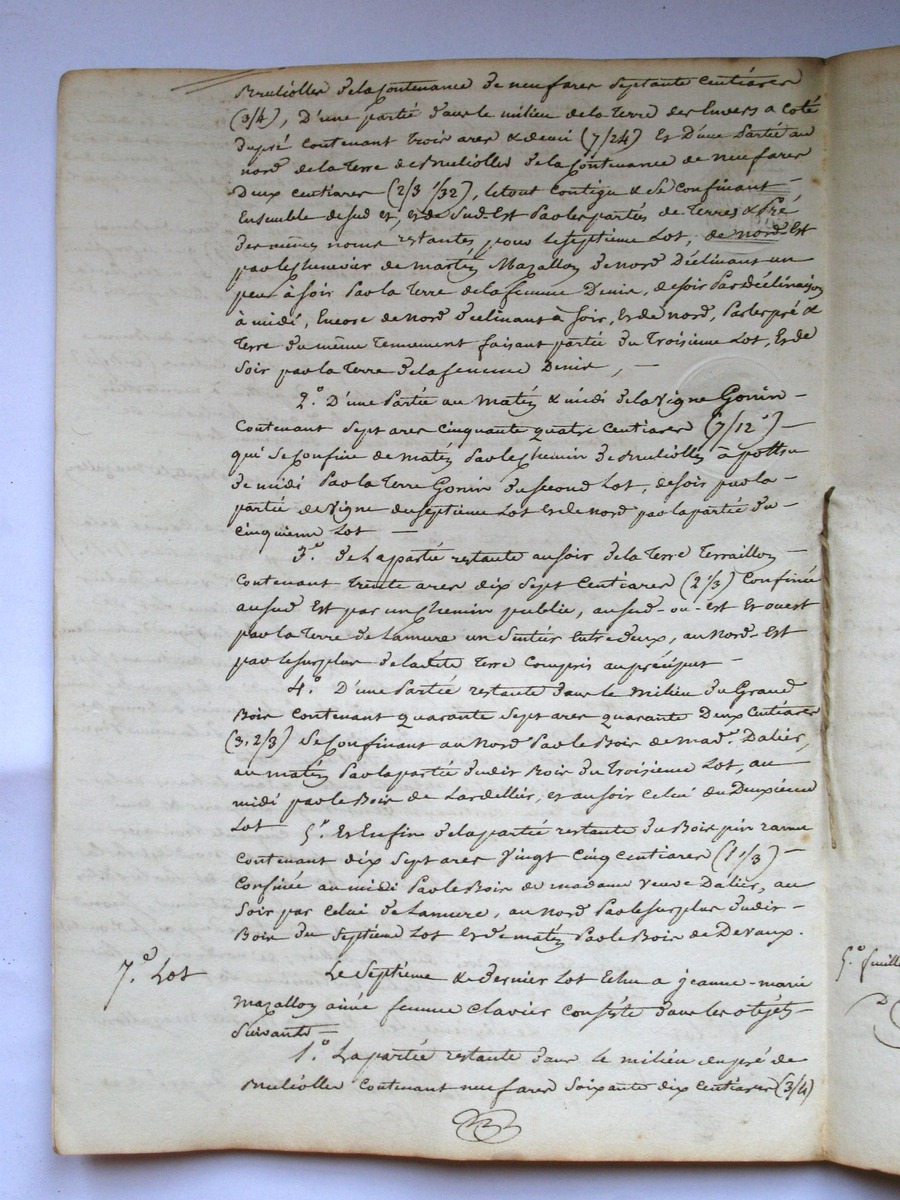 Bruliolles de la Contenance de neuf ares Septante Centiares
(3/4), D'une partie dans le milieu de la Terre des Envers a Coté
du pré Contenant Trois ares & demi (7/24) Et D'une Partie au
nord de la Terre de Bruliolles de la Contenance de neuf ares
Deux centiares (2/3 1/32), le tout Contigu & Se Confinant
Ensemble de Sud et, et de Sud-Est Par les parties de Terres & Pré
des mêmes noms restantes, pour le Septieme Lot, de nord-Est
par le Chemin de martin Mazallon de nord Déclinant un
peu à Soir Par la Terre de la femme Denis, de soir Par déclinaison
à midi, Encore de nord déclinant à Soir, et de nord, Par les pré &
Terre du même Tennement faisant partie du Troisieme Lot, Et de
Soir par la Terre de la femme Denis, —
2.° D'une Partie au Matin & midi de la Vigne Gonin —
Contenant Sept ares Cinquante quatre Centiares (7/12e) —
qui Se Confine de matin Par le Chemin de Bruliolles à
de midi Par la Terre Gonin du Second Lot, de soir par la —
partie de Vigne du Septieme Lot et de nord par la partie du —
Cinquieme Lot —
3.° de La partie restante au soir de la Terre Terraillon —
Contenant Trente ares dix Sept Centiares (2 1/3) Confinée
au sud Est par un Chemin public, au sud-ou-est Et ouest
par la Terre de Lamure un Sentier Entre deux, au Nord-Est
par le surplus de la dite Terre Compris au préciput —
4.° D'une Partie restante dans le milieu du Grand
Bois Contenant quarante Sept ares quarante Deux Centiares
(3,2/3) Se Confinant au Nord Par le Bois de Made. Dalier,
au matin Par la partie dudit Bois du Troisieme Lot, au
midi par le Bois de Lardellier, et au soir Celui du Deuxième
Lot 5.° Et Enfin de la partie restante du Bois pin
Contenant dix Sept ares Vingt Cinq Centiares (1 1/3) —
Confinée au midi Par le Bois de madame Veuve Dalier, au
Soir par Celui de Lamure, au nord Par le Surplus dudit —
Bois du Septieme Lot et de matin Par le Bois de Devaux.
7.° Lot
Le Septieme & dernier Lot Echu a jeanne-marie
Mazallon ainée femme Clavier Consiste dans les objets
Suivants —
1.° La partie restante dans le milieu du pré de
Bruliolles Contenant neuf ares Soixante dix Centiares (3/4)
5.° feuille